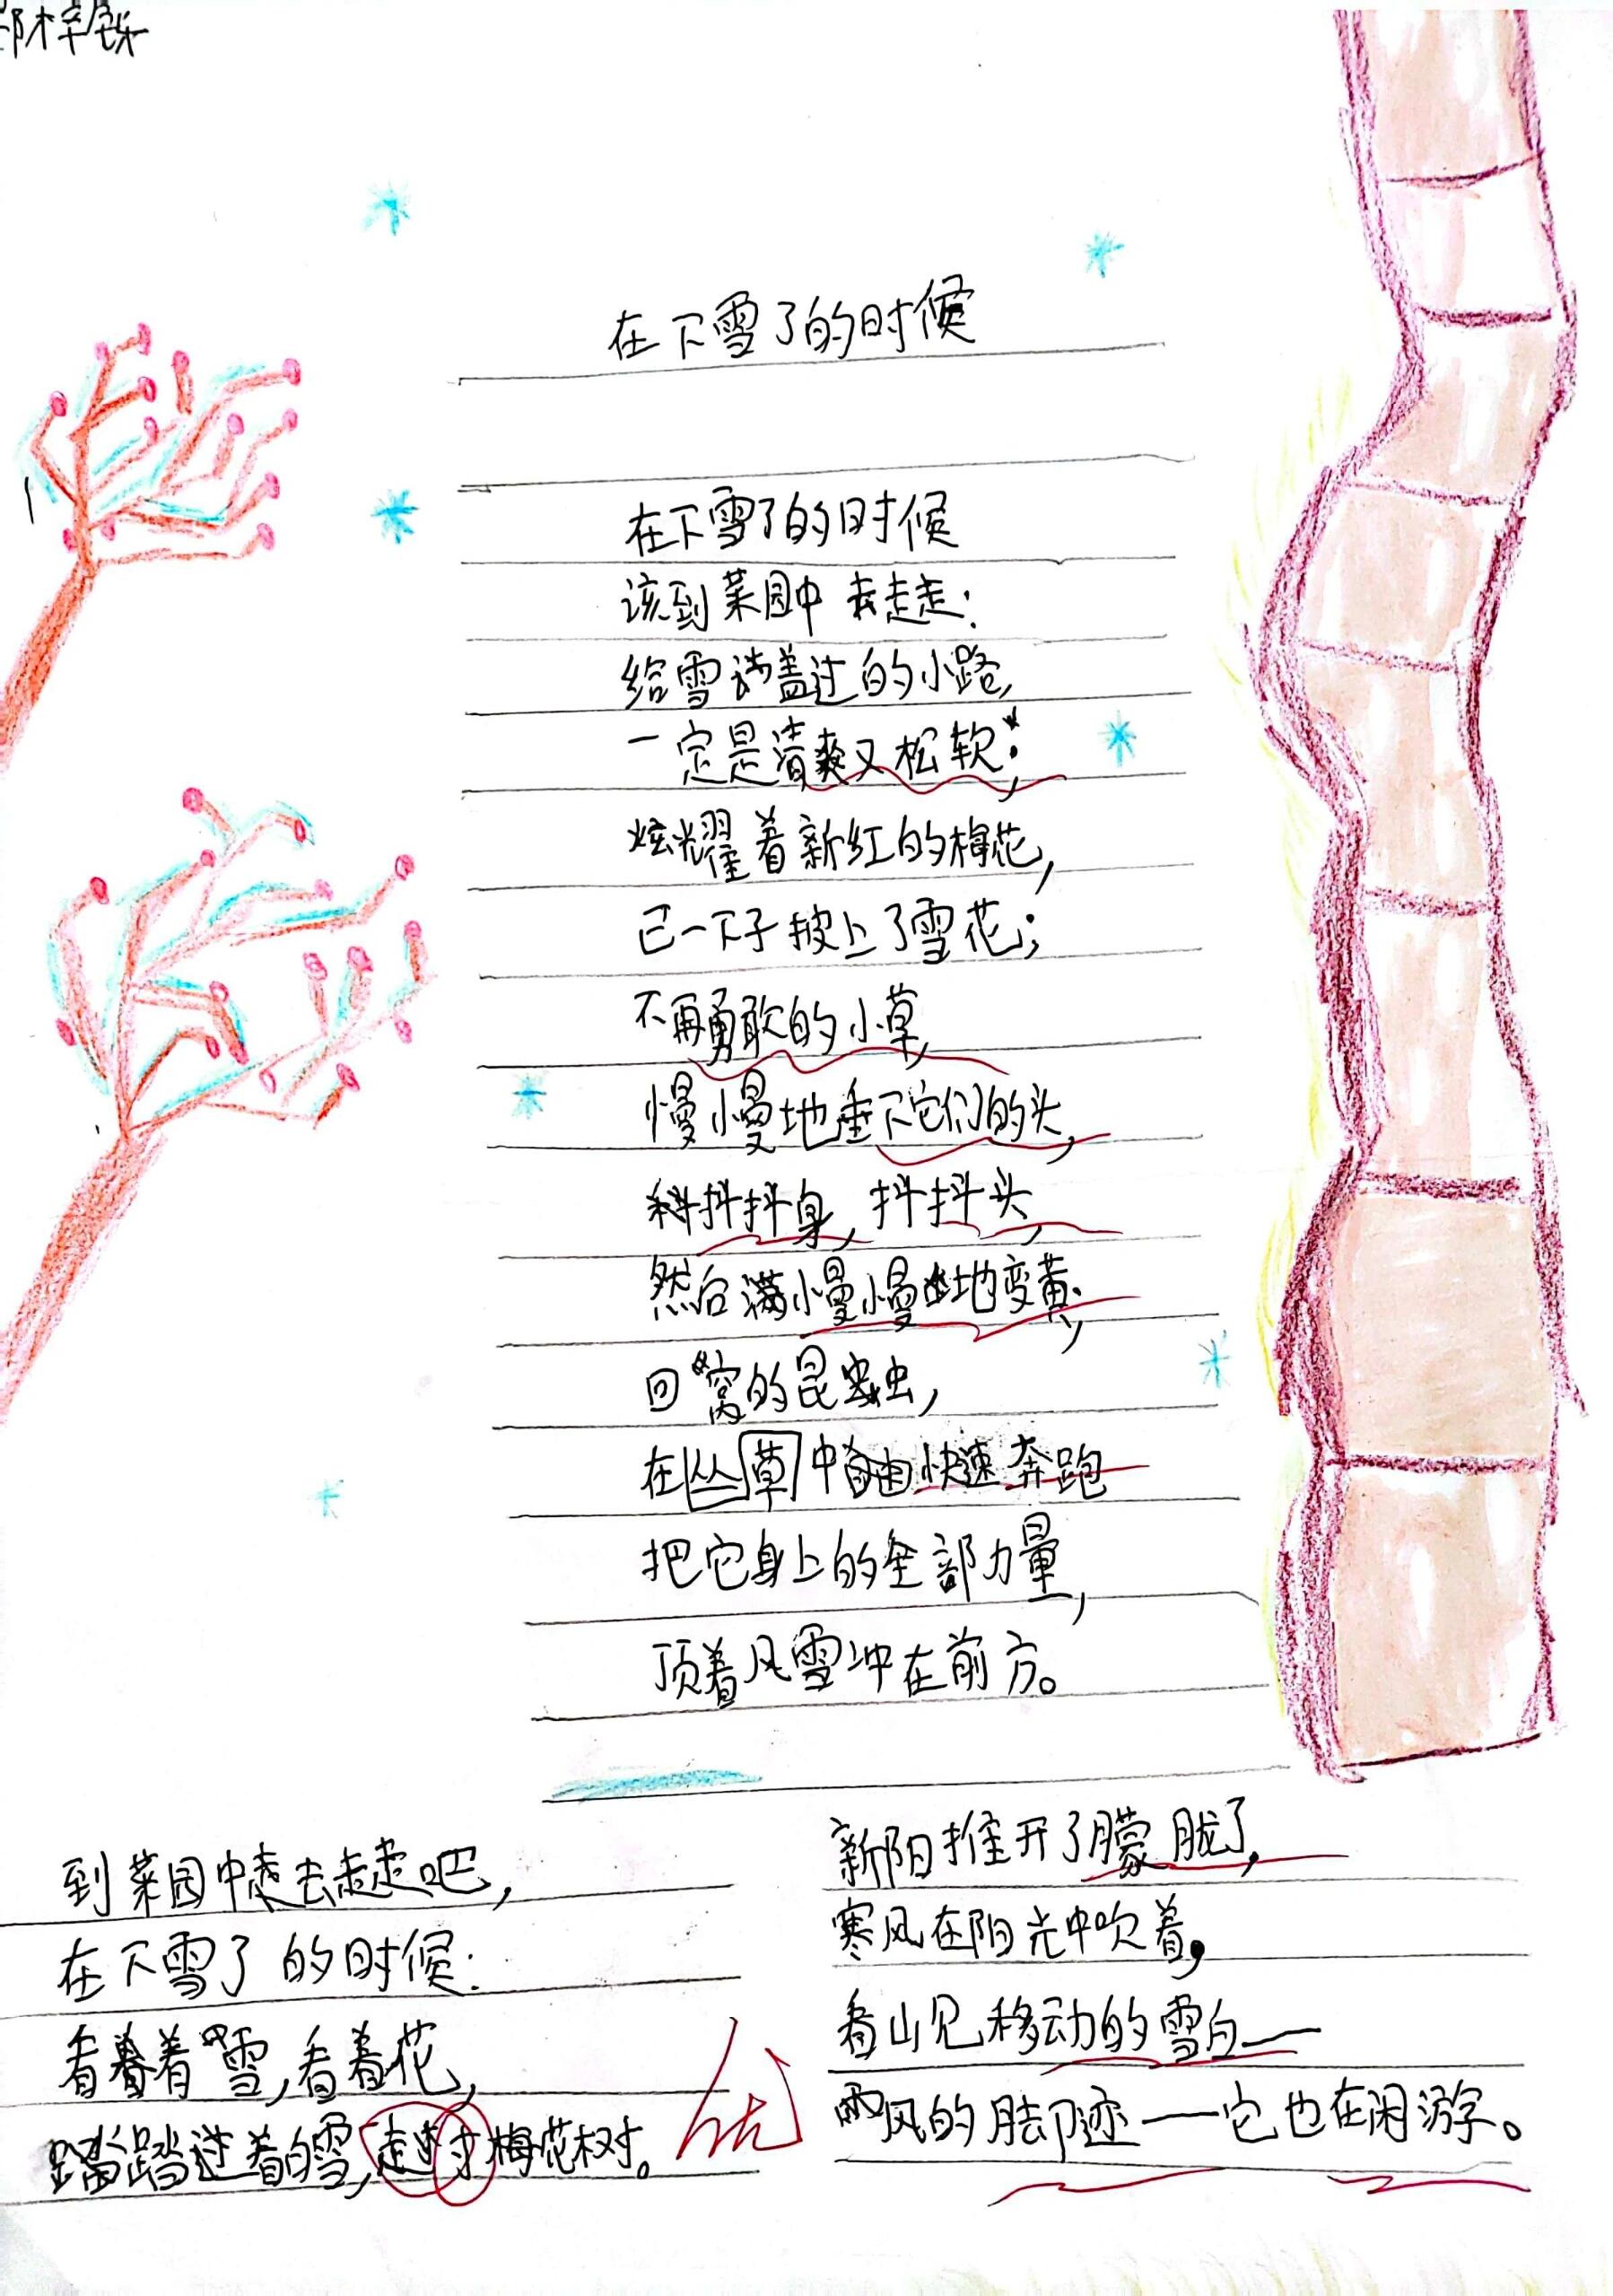 梓铄
在下雪了的时候
在下雪了的时候
该到菜园中去走走：
给雪满盖过的小路，
一定是清爽又松软；
炫耀着新红的梅花，
已一下子披上了雪花；
不再勇敢的小草，
慢慢地垂下它们的头，
抖抖身，抖抖头，
然后满慢慢地变黄，
回窝的昆虫，
在丛草中自由快速奔跑
把它身上的全部力量，
顶着风雪冲在前方。
到菜园中去走走吧，
在下雪了的时候：
看着雪，看着花，
踏过着白雪，走过寸梅花树。
优
新阳推开了朦胧了，
寒风在阳光中吹着，
看山见移动的雪白——
雨风的脚迹——它也在闲游。